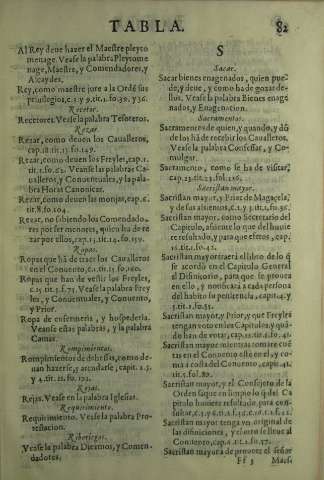 TABLA.
82
Al Rey deue hazer el Maestre pleyto
menage. Vease la palabra Pleytome
nage, Maestre, y Comendadores, y
Alcaydes.
Rey, como maestre jure a la Ordē sus
priuilegios, c.1. y 9. tit.1. fo.39. y 36.
Recetor.
Recetores. Vease la palabra Tesoreros.
Rezar
Rezar, como deuen los Caualleros,
cap.18. tit.13. fo.149.
Rezar, como deuen los Freyles, cap.1.
Veanse las palabras Ca
ualleros, y Conuentuales, y la pala-
bra Horas Canonicas.
Rezar, como deuen las monjas, cap.6.
tit.8. fo.104.
Rezar, no sabiendo los Comendado-
res por ser menores, quien ha de re
zar por ellos, cap.13. tit.14. fo.159.
Ropas.
Ropas que hã de traer los Caualleros
en el Conuento,
Ropas que han de vestir los Freyles,
Vease la palabra Frey
les, y Conuentuales, y Conuento,
y Prior.
Ropa de enfermeria, y hospederia.
Veanse estas palabras, y la palabra
Camas.
Rompimientos.
Rompimientos de dehessas, como de-
uan hazerse, y arrendarse, capit. 2.3.
y 4. tit.
Rejas.
Rejas. Vease en la palabra Iglesias.
Requirimiento.
Requirimiento. Vease en la palabra Pro-
testacion.
Vease la palabra Diezmos, y Comen-
dadores.
S
Sacar.
Sacar bienes enagenados, quien pue-
de, y deue, y como ha de gozar de-
llos. Vease la palabra Bienes enage
nados, y Enagenacion.
Sacramentos.
Sacramentos de quien, y quando, y dō
de los hã de recebir los Caualleros,
Vease la palabra Confessar, y Co-
mulgar.
Sacramento, como se ha de visitar,
cap.23. tit.21. fol.216.
Sacristan mayor.
Sacristan mayor, y Prior de Magacela,
y de sus assientos, c.1. y 5. tit.1. fo.36.
Sacristan mayor, como Secretario del
Capitulo, assiente lo que del huuie
re resultado, y para que efetos, cap.
13. tit.1. fo.42.
Sacristan mayor traera el libro de lo q̃
se acordò en el Capitulo General
al Difinitorio, para que se prouea
en ello, y notificarà a cada persona
del habito su penitencia, capit.4. y
del tit.1. fo.51.
Sacristan mayor, y Prior, y que Freyles
tengan voto en los Capitulos, y quã
do han de votar, cap.22. tit.1. fo.43.
Sacristan mayor mientras tomare cuẽ
tas en el Conuento este en el, y co-
ma a costa del Conuento, capit.42.
tit.5. fol.89.
Sacristan mayor, y el Consejero de la
Orden saque en limpio lo q̃ del Ca
pitulo huuiere resultado, para con-
sultar,
Sacristan mayor tenga en original de
las difiniciones, y el otro se lleue al
Conuento, cap.4. tit.1. fo.52.
Sacristan mayor de proueer el señor
Ff 3